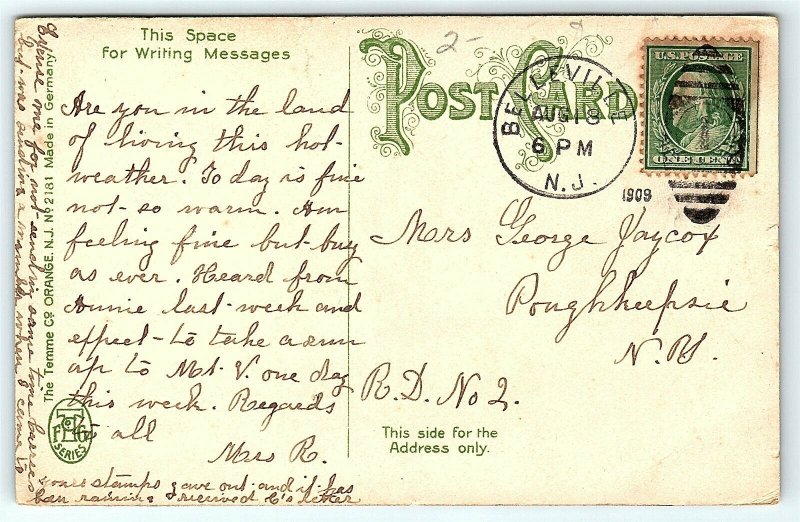 This Space
for Writing Messages
POST CARD
U.S. POSTAGE
ONE CENT
BELLEVILLE
AUG 18
6 PM
N.J.
1909
Are you in the land
of living this hot
weather. To day is fine
not so warm. Am
feeling fine but busy
as ever. Heard from
Annie last week and
expect to take a run
up to Mt. V. one day
this week. Regards
to all
Mrs R.
your stamps gave out and it has
been raining & received E's letter
Excuse me for not sending same time
but was sending a
when I came to
The Temme Co ORANGE. N.J. No 2181 Made in Germany
SERIES
Mrs George Jaycox
Poughkeepsie
N.Y.
R.D. No 2.
This side for the
Address only.